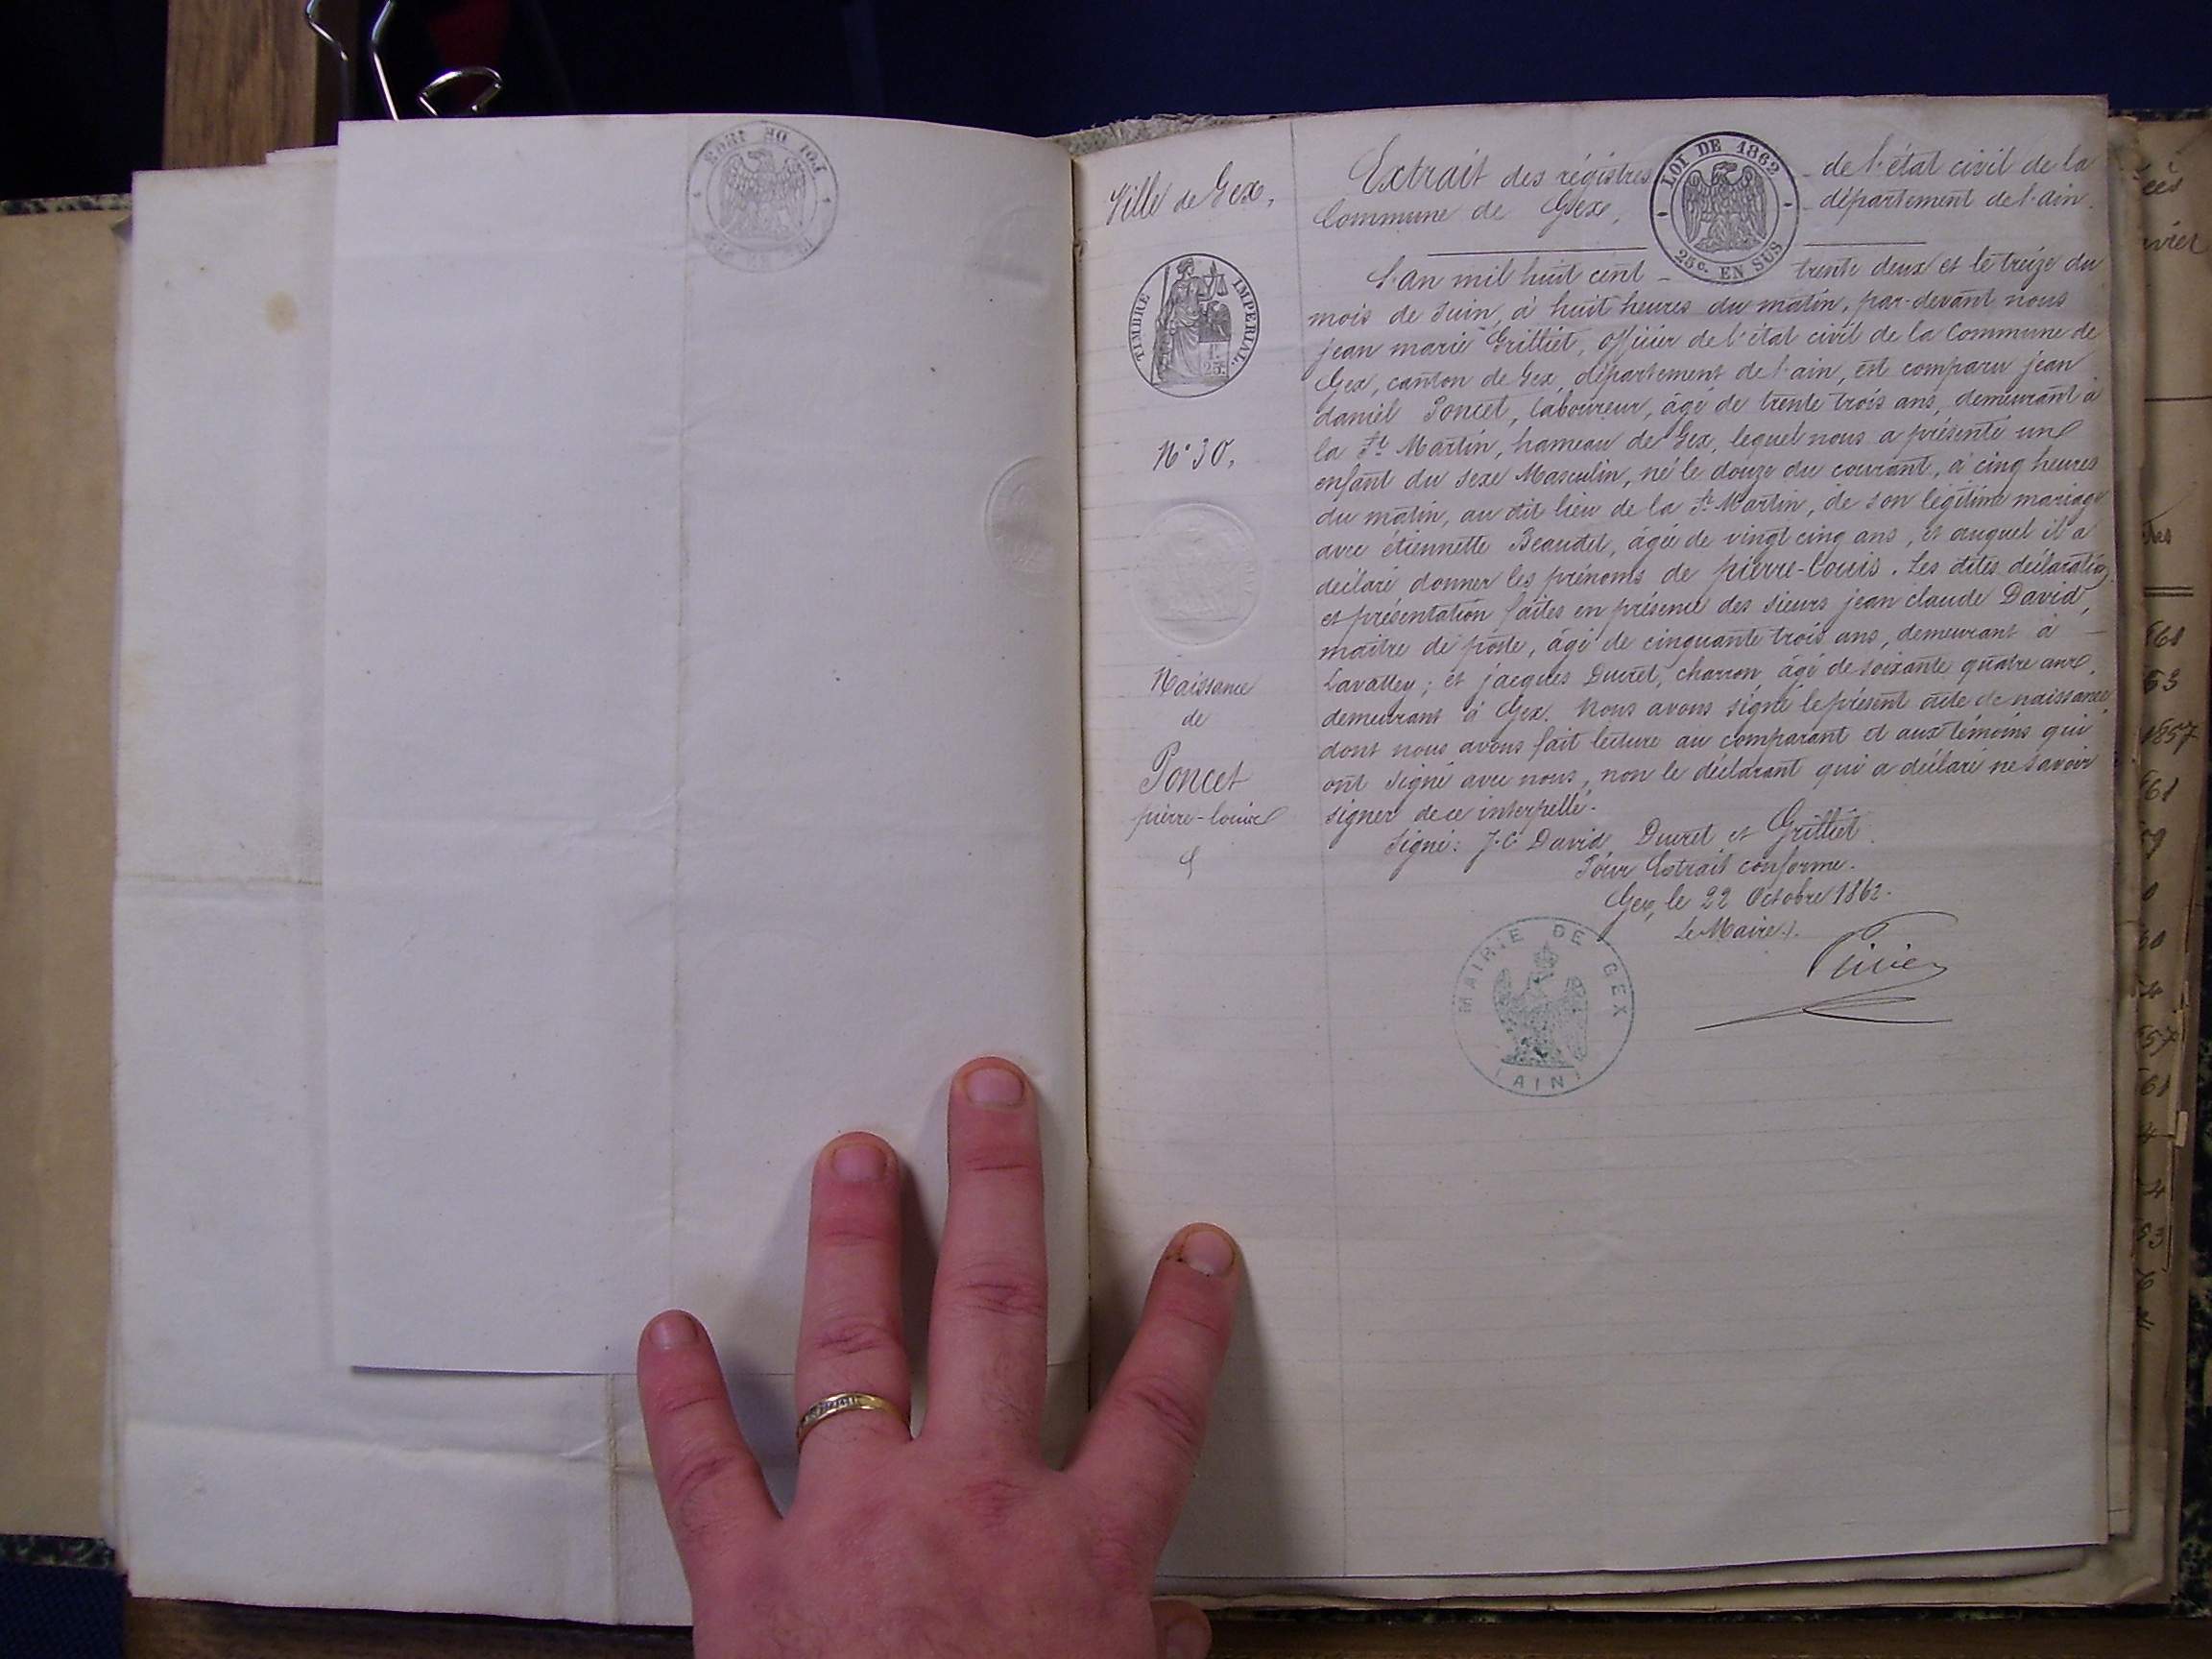 Ville de Gex,
TIMBRE IMPERIAL
1f. 25c.
N° 30,
Naissance
de
Poncet
pierre-louis
Extrait des régistres de l'état civil de la
Commune de Gex, département de l'ain.
LOI DE 1862
25c. EN SUS
L'an mil huit cent trente deux et le treize du
mois de Juin, à huit heures du matin, par-devant nous
jean marie Grilliet, officier de l'état civil de la Commune de
Gex, canton de Gex, département de l'ain, est comparu jean
daniel Poncet, laboureur, âgé de trente trois ans, demeurant à
la St Martin, hameau de Gex, lequel nous a présenté un
enfant du sexe Masculin, né le douze du courant, à cinq heures
du matin, au dit lieu de la St Martin, de son légitime mariage
avec étiennette Beaudet, âgée de vingt cinq ans, et auquel il a
déclaré donner les prénoms de pierre-Louis. Les dites déclaration
et présentation faites en présence des sieurs jean claude David,
maître de poste, âgé de cinquante trois ans, demeurant à
Lavattey; et jacques Duret, charron âgé de soixante quatre ans,
demeurant à Gex. Nous avons signé le présent acte de naissance
dont nous avons fait lecture au comparant et aux témoins qui
ont signé avec nous, non le déclarant qui a déclaré ne savoir
signer de ce interpellé.
Signé: J.C David, Duret et Grilliet.
Pour Extrait conforme.
Gex, le 22 Octobre 1862.
Le Maire.
MAIRIE DE GEX
(AIN)